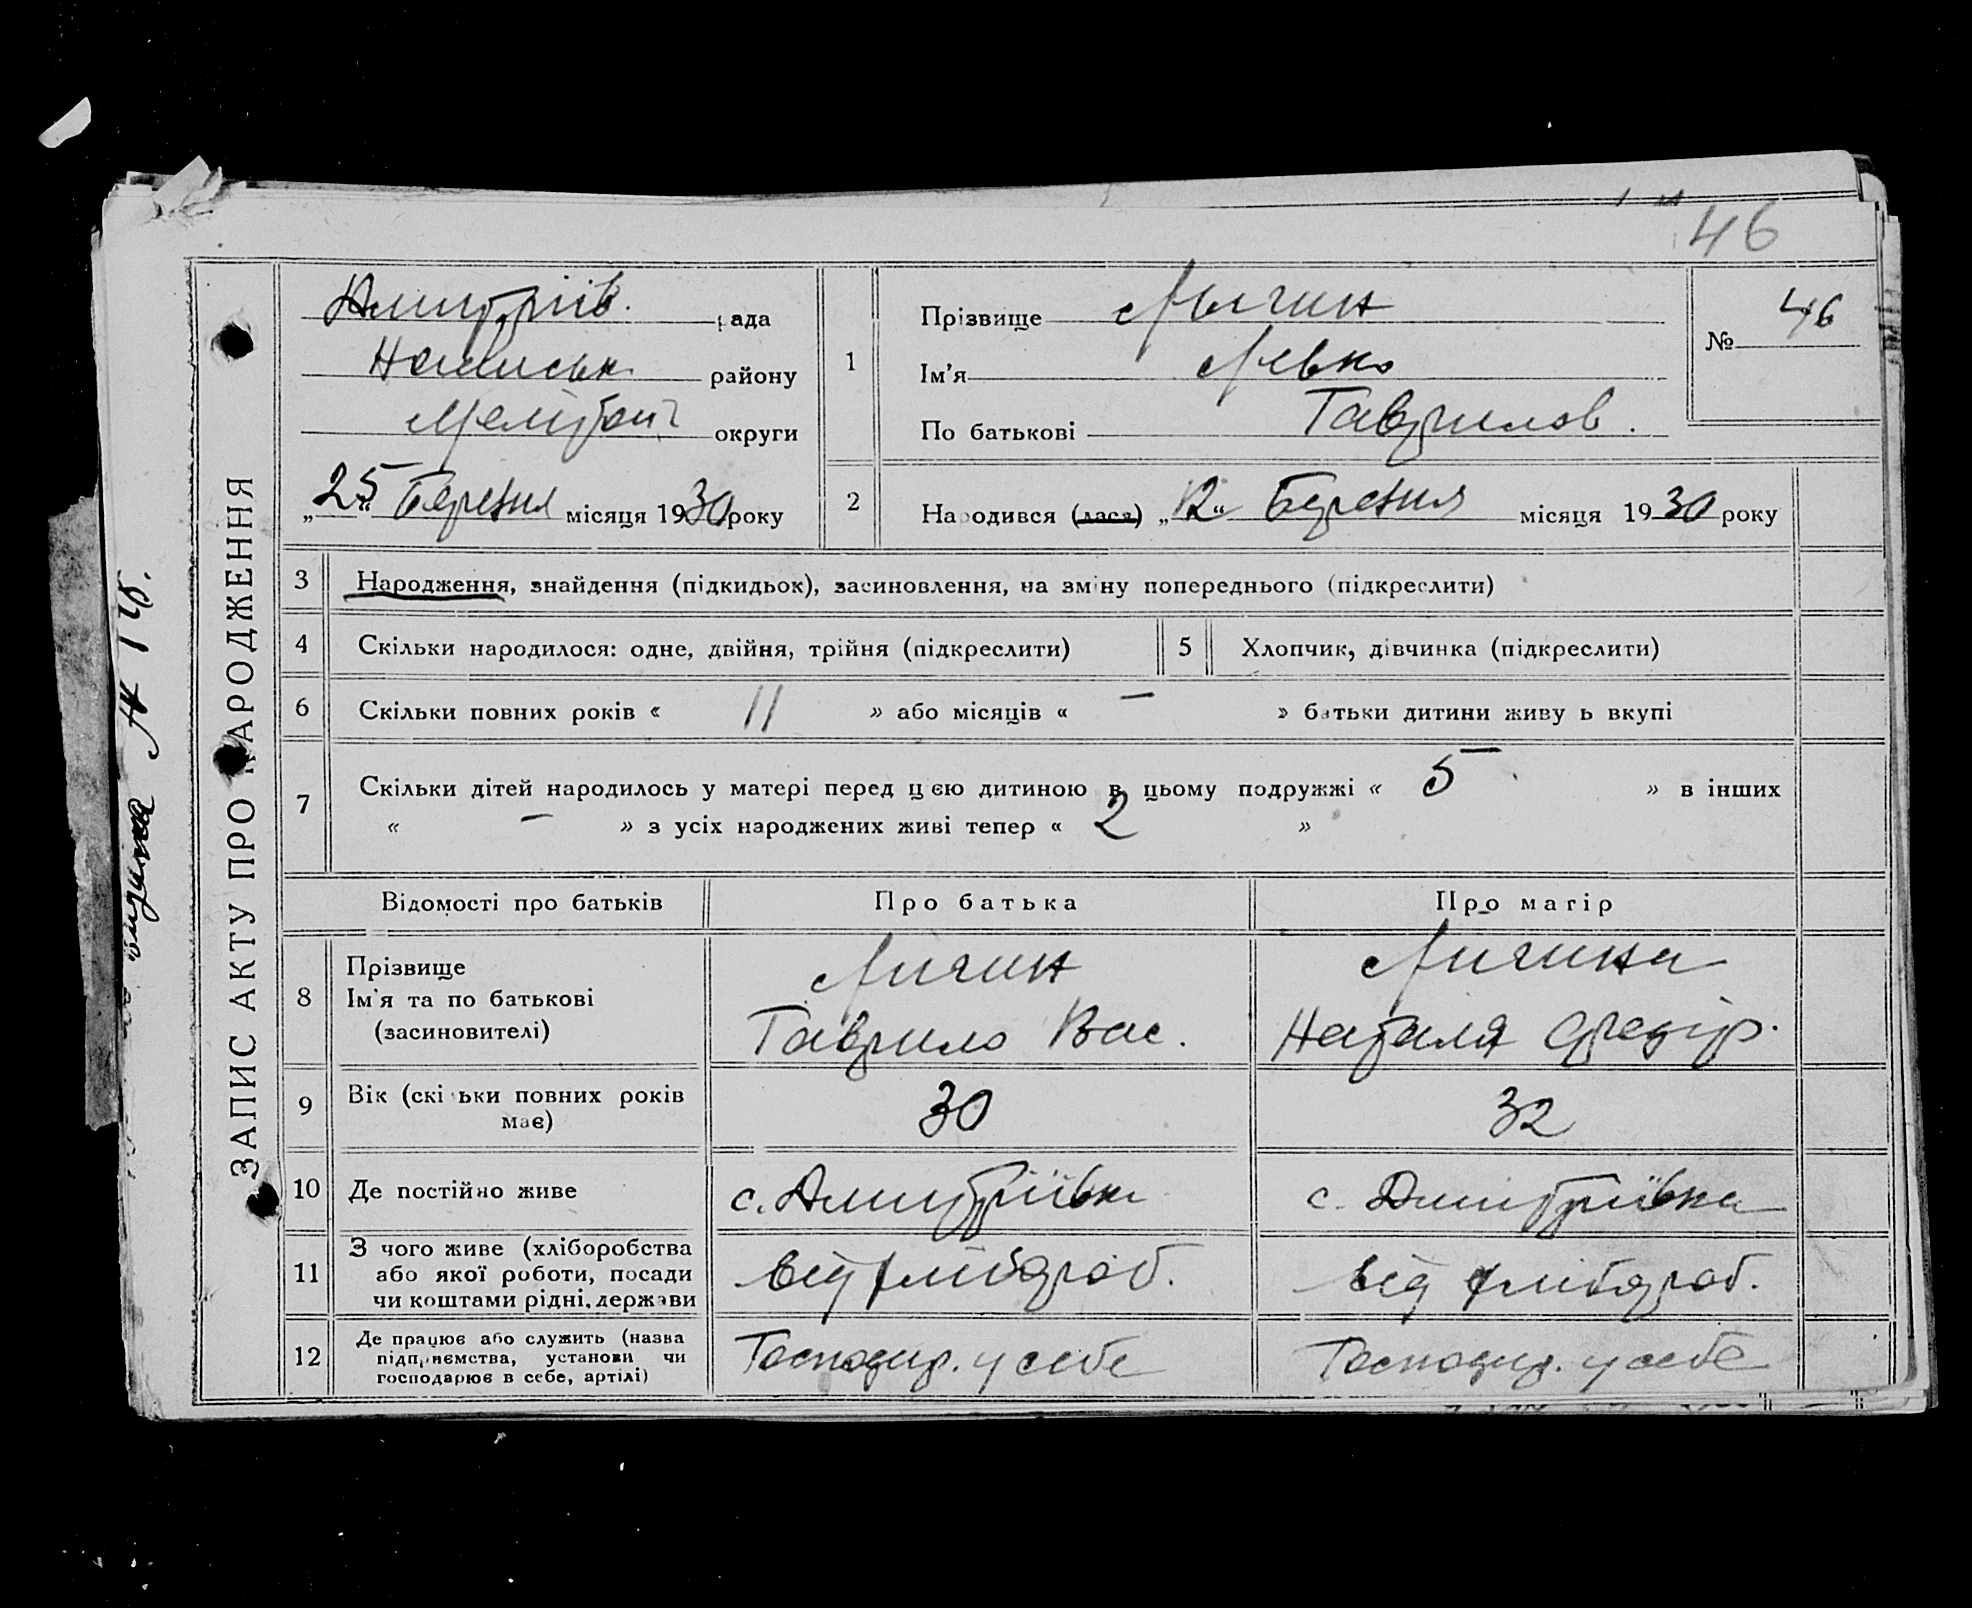 46
ЗАПИС АКТУ ПРО НАРОДЖЕННЯ
Дмитрів. рада
району
Меліtоп. округи
„25“ Березня місяця 1930 року
1
Прізвище Личин
Ім'я Левко
По батькові Гаврилов.
№ 46
2
Народився (лася) „12“ Березня місяця 1930 року
3 Народження, знайдення (підкидьок), засиновлення, на зміну попереднього (підкреслити)
4 Скільки народилося: одне, двійня, трійня (підкреслити)
5 Хлопчик, дівчинка (підкреслити)
6 Скільки повних років « 11 » або місяців « – » батьки дитини живуть вкупі
7 Скільки дітей народилось у матері перед цією дитиною в цьому подружжі « 5 » в інших
« – » з усіх народжених живі тепер « 2 »
Відомості про батьків Про батька Про матір
8 Прізвище
Ім'я та по батькові
(засиновителі)
Личин
Гаврило Вас.
Личина
Наталя Федір.
9 Вік (скільки повних років
має)
30
32
10 Де постійно живе с. Дмитріївка с. Дмитріївка
11 З чого живе (хліборобства
або якої роботи, посади
чи коштами рідні, держави
від хлібороб. від хлібороб.
12 Де працює або служить (назва
підприємства, установи чи
господарює в себе, артілі)
Господар. у себе Господар. у себе